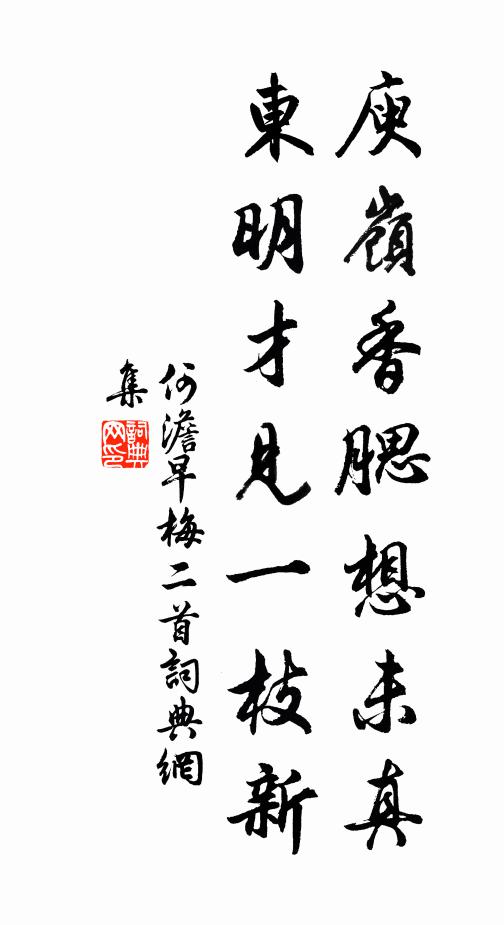 庾嶺香腮想未真
東明才見一枝新
何澹早梅二首詞典網
集
詞典
网印